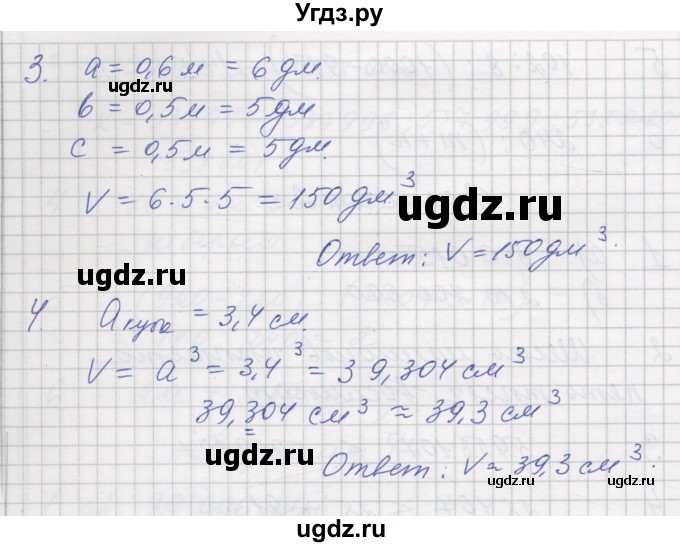 Угдз.ру
3. a = 0,6 м = 6 дм.
b = 0,5 м = 5 дм
c = 0,5 м = 5 дм.
V = 6·5·5 = 150 дм³
ugdz.ru
Ответ: V = 150 дм³.
ugdz.ru
4. a куба = 3,4 см.
V = a³ = 3,4³ = 39,304 см³
ugdz.ru
39,304 см³ ≈ 39,3 см³
ugdz.ru
Ответ: V ≈ 39,3 см³.
ugdz.ru
ugdz.ru